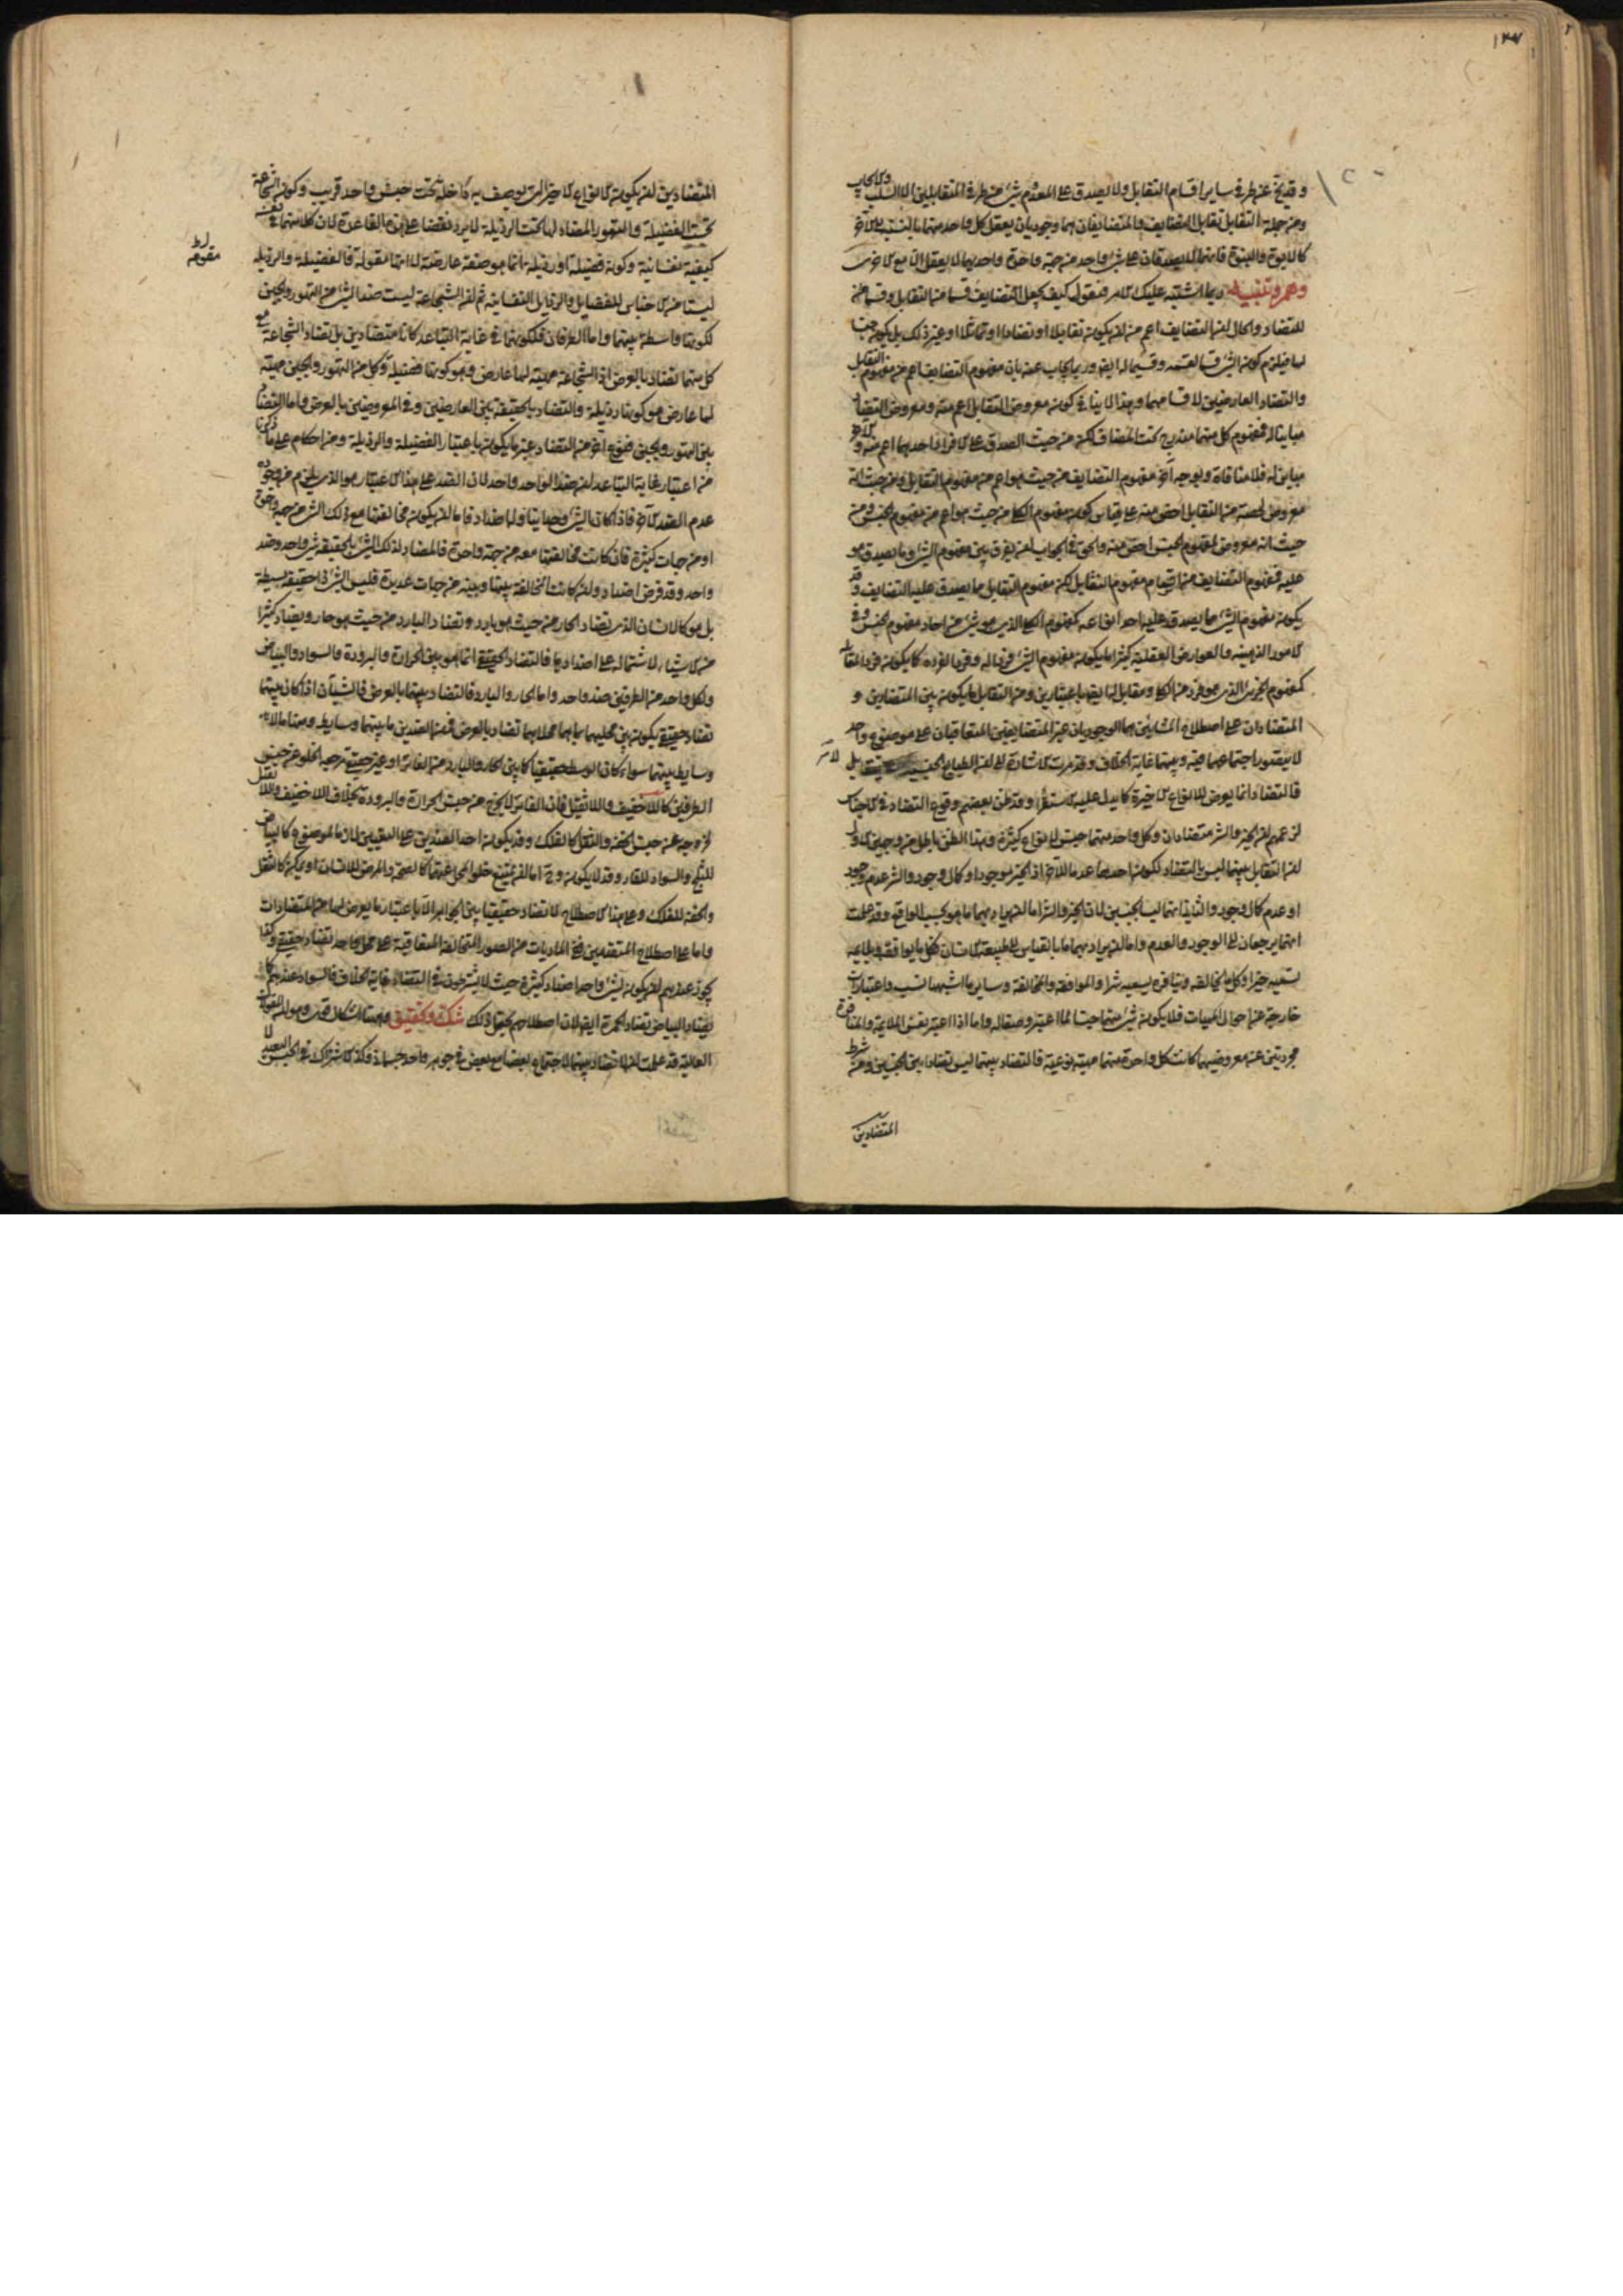 ١٢٧
وقد يخ عنه طرفى ساير اقسام التقابل ولا يصدق على المعدوم شئ من طرفى المتقابلين الا السلب والايجاب
ومن جملة التقابل تقابل التضايف والمتضايفان هما وجوديان يعقل كل واحد منهما بالنسبة الى الآخر
كالابوة والبنوة فانهما لا يصدقان على شئ واحد من جهة واحدة واحدهما لا يعقل الا مع الآخر
وهم وتنبيه ربما اشتبه عليك الامر فتقول كيف يجعل التضايف قسما من التقابل وقسيما
للتضاد والحال ان التضايف اعم من ان يكون تقابلا او تضادا او تماثلا او غير ذلك بل يكون جنسا
لها فيلزم كون الشئ قسما لقسمه وقسيما له ايضا وربما يجاب عنه بان مفهوم التضايف اعم من مفهوم التقابل
والتضاد العارضين لاقسامهما وهذا لا ينافى كون معروض التقابل اعم منه ومعروض التضاد
مباينا له فمفهوم كل منهما مندرج تحت المضاف لكن من حيث الصدق على الافراد احدهما اعم منه والآخر
مباين له فلا منافاة وبوجه آخر مفهوم التضايف من حيث هو اعم من مفهوم التقابل ومن حيث انه
معروض لحصة من التقابل اخص منه على قياس كون مفهوم الكلى من حيث هو اعم من مفهوم الجنس ومن
حيث انه معروض لمفهوم الجنس اخص منه والحق فى الجواب ان يفرق بين مفهوم الشئ وما يصدق هو
عليه فمفهوم التضايف من اقسام مفهوم التقابل لكن مفهوم التقابل مما يصدق عليه التضايف وقد
يكون مفهوم الشئ مما يصدق عليه احد انواعه كمفهوم الكلى الذى هو شئ من آحاد مفهوم الجنس وفى
الامور الذهنية والعوارض العقلية كثيرا ما يكون مفهوم الشئ فردا له وفردا لفرده كما يكون فردا لمقابله
كمفهوم الجزئى الذى هو فرد من الكلى ومقابل له ايضا باعتبارين ومن التقابل ما يكون بين المتضادين و
المتضادان على اصطلاح المشائين هما الوجوديان غير المتضايفين المتعاقبان على موضوع واحد
لا يتصور اجتماعهما فيه وبينهما غاية الخلاف وقد مرت الاشارة الى ان الطبايع الجنسية لا تتقابل
فالتضاد انما يعرض للانواع الاخيرة كما يدل عليه الاستقراء وقد ظن بعضهم وقوع التضاد فى الاجناس
لزعمهم ان الخير والشر متضادان وكل واحد منهما جنس لانواع كثيرة وهذا الظن باطل من وجهين الاول
ان التقابل بينهما ليس بالتضاد لكون احدهما عدما للآخر اذ الخير موجود او كمال وجود والشر عدم وجود
او عدم كمال وجود والثانى انهما ليسا بجنسين لان الخير والشر اما ان يراد بهما ما هو بحسب الواقع وقد علمت
انهما يرجعان الى الوجود والعدم واما ان يراد بهما ما بالقياس الى طبيعة الانسان فكل ما يوافقه ويلايمه
تسميه خيرا وكل ما يخالفه وينافره يسميه شرا والموافقة والمخالفة وساير ما اشبهها نسب واعتبارات
خارجة عن احوال الماهيات فلا يكون شئ منهما جنسا لما اعتبر وصفا له واما اذا اعتبر نفس الملايمة والمنافرة
مجردتين عن معروضيهما كانت كل واحدة منهما مهية نوعية فالتضاد بينهما ليس تضادا بين الجنسين ومن شرط
المتضادين
المتضادين ان يكون الانواع الاخيرة التى توصف به داخلة تحت جنس واحد قريب وكون الشجاعة
تحت الفضيلة والتهور المضاد لها تحت الرذيلة لا يرد نقضا على هذه القاعدة لان كلا منهما فى نفسه
كيفية نفسانية وكونه فضيلة او رذيلة انما هو صفة عارضة له لا انها مقولة فالفضيلة والرذيلة
مقومة
ليستا من الاجناس للفضايل والرذايل النفسانية ثم ان الشجاعة ليست ضدا لشئ من التهور والجبن
لكونها واسطة بينهما واما الطرفان فلكونهما فى غاية التباعد كانا متضادين بل تضاد الشجاعة مع
كل منهما تضاد بالعرض اذ الشجاعة مهية لها عارض وهو كونها فضيلة وكل من التهور والجبن مهية
لها عارض هو كونها رذيلة والتضاد بالحقيقة بين العارضين وفى المعروضين بالعرض واما التضاد
بين التهور والجبن فنوع آخر من التضاد غير ما يكون باعتبار الفضيلة والرذيلة ومن احكام على ما ذكرنا
من اعتبار غاية التباعد ان ضد الواحد واحد لان الضد على هذا الاعتبار هو الذى يلزم من وجوده
عدم الضد الآخر فاذا كان الشئ وحدانيا وله اضداد فاما ان يكون مخالفتها مع ذلك الشئ من جهة واحدة
او من جهات كثيرة فان كانت مخالفتها معه من جهة واحدة فالمضاد لذلك الشئ بالحقيقة شئ واحد وضد
واحد وقد فرض اضداد وان كانت المخالفة بينها وبينه من جهات عديدة فليس الشئ ذا حقيقة بسيطة
بل هو كالانسان الذى تضاد الحار من حيث هو بارد وتضاد البارد من حيث هو حار ويضاد كثيرا
من الاشياء لاشتماله على اضدادها فالتضاد الحقيقى انما هو بين الحرارة والبرودة والسواد والبياض
ولكل واحد من الطرفين ضد واحد واما الحار والبارد فالتضاد بينهما بالعرض فالشيآن اذا كان بينهما
تضاد حقيقى يكون بين محليهما بما هما محلاهما تضاد بالعرض فمن الضدين ما بينهما وسايط ومنها ما لا
وسايط بينهما سواء كان الوسط حقيقيا كما بين الحار والبارد من الفاتر او غير حقيقى ترجمه الخلو من جنس
الطرفين كاللا خفيف واللا ثقيل فان الفاتر لا يخرج عن جنس الحرارة والبرودة بخلاف اللا خفيف واللا ثقيل
لخروجه عن جنس الخفة والثقل كالفلك وقد يكون احد الضدين على التعيين لازما للموضوع كالبياض
للثلج والسواد للقار وقد لا يكون وح اما ان يمتنع خلو المحل عنهما كالصحة والمرض للانسان او يمكن كالثقل
والخفة للفلك وعلى هذا الاصطلاح لا تضاد حقيقيا بين الجواهر الا باعتبار ما يعرض لها من المتضادات
واما على اصطلاح المتقدمين ففى الماديات من الصور المتخالفة المتعاقبة على محل واحد تضاد حقيقى وكذا
يجوز عندهم ان يكون لشئ واحد اضداد كثيرة حيث لا يشترطون فى التضاد غاية الخلاف فالسواد عندهم كما
يضاد البياض يضاد الحمرة ايضا لان اصطلاحهم يحتمل ذلك شك وتحقيق وههنا اشكال قوى وهو ان المقولات
العالية قد علمت انها لا تضاد بينها لاجتماع بعضها مع بعض فى جوهر واحد جسمانى فكان الاشتراك فى الجنس البعيد لا